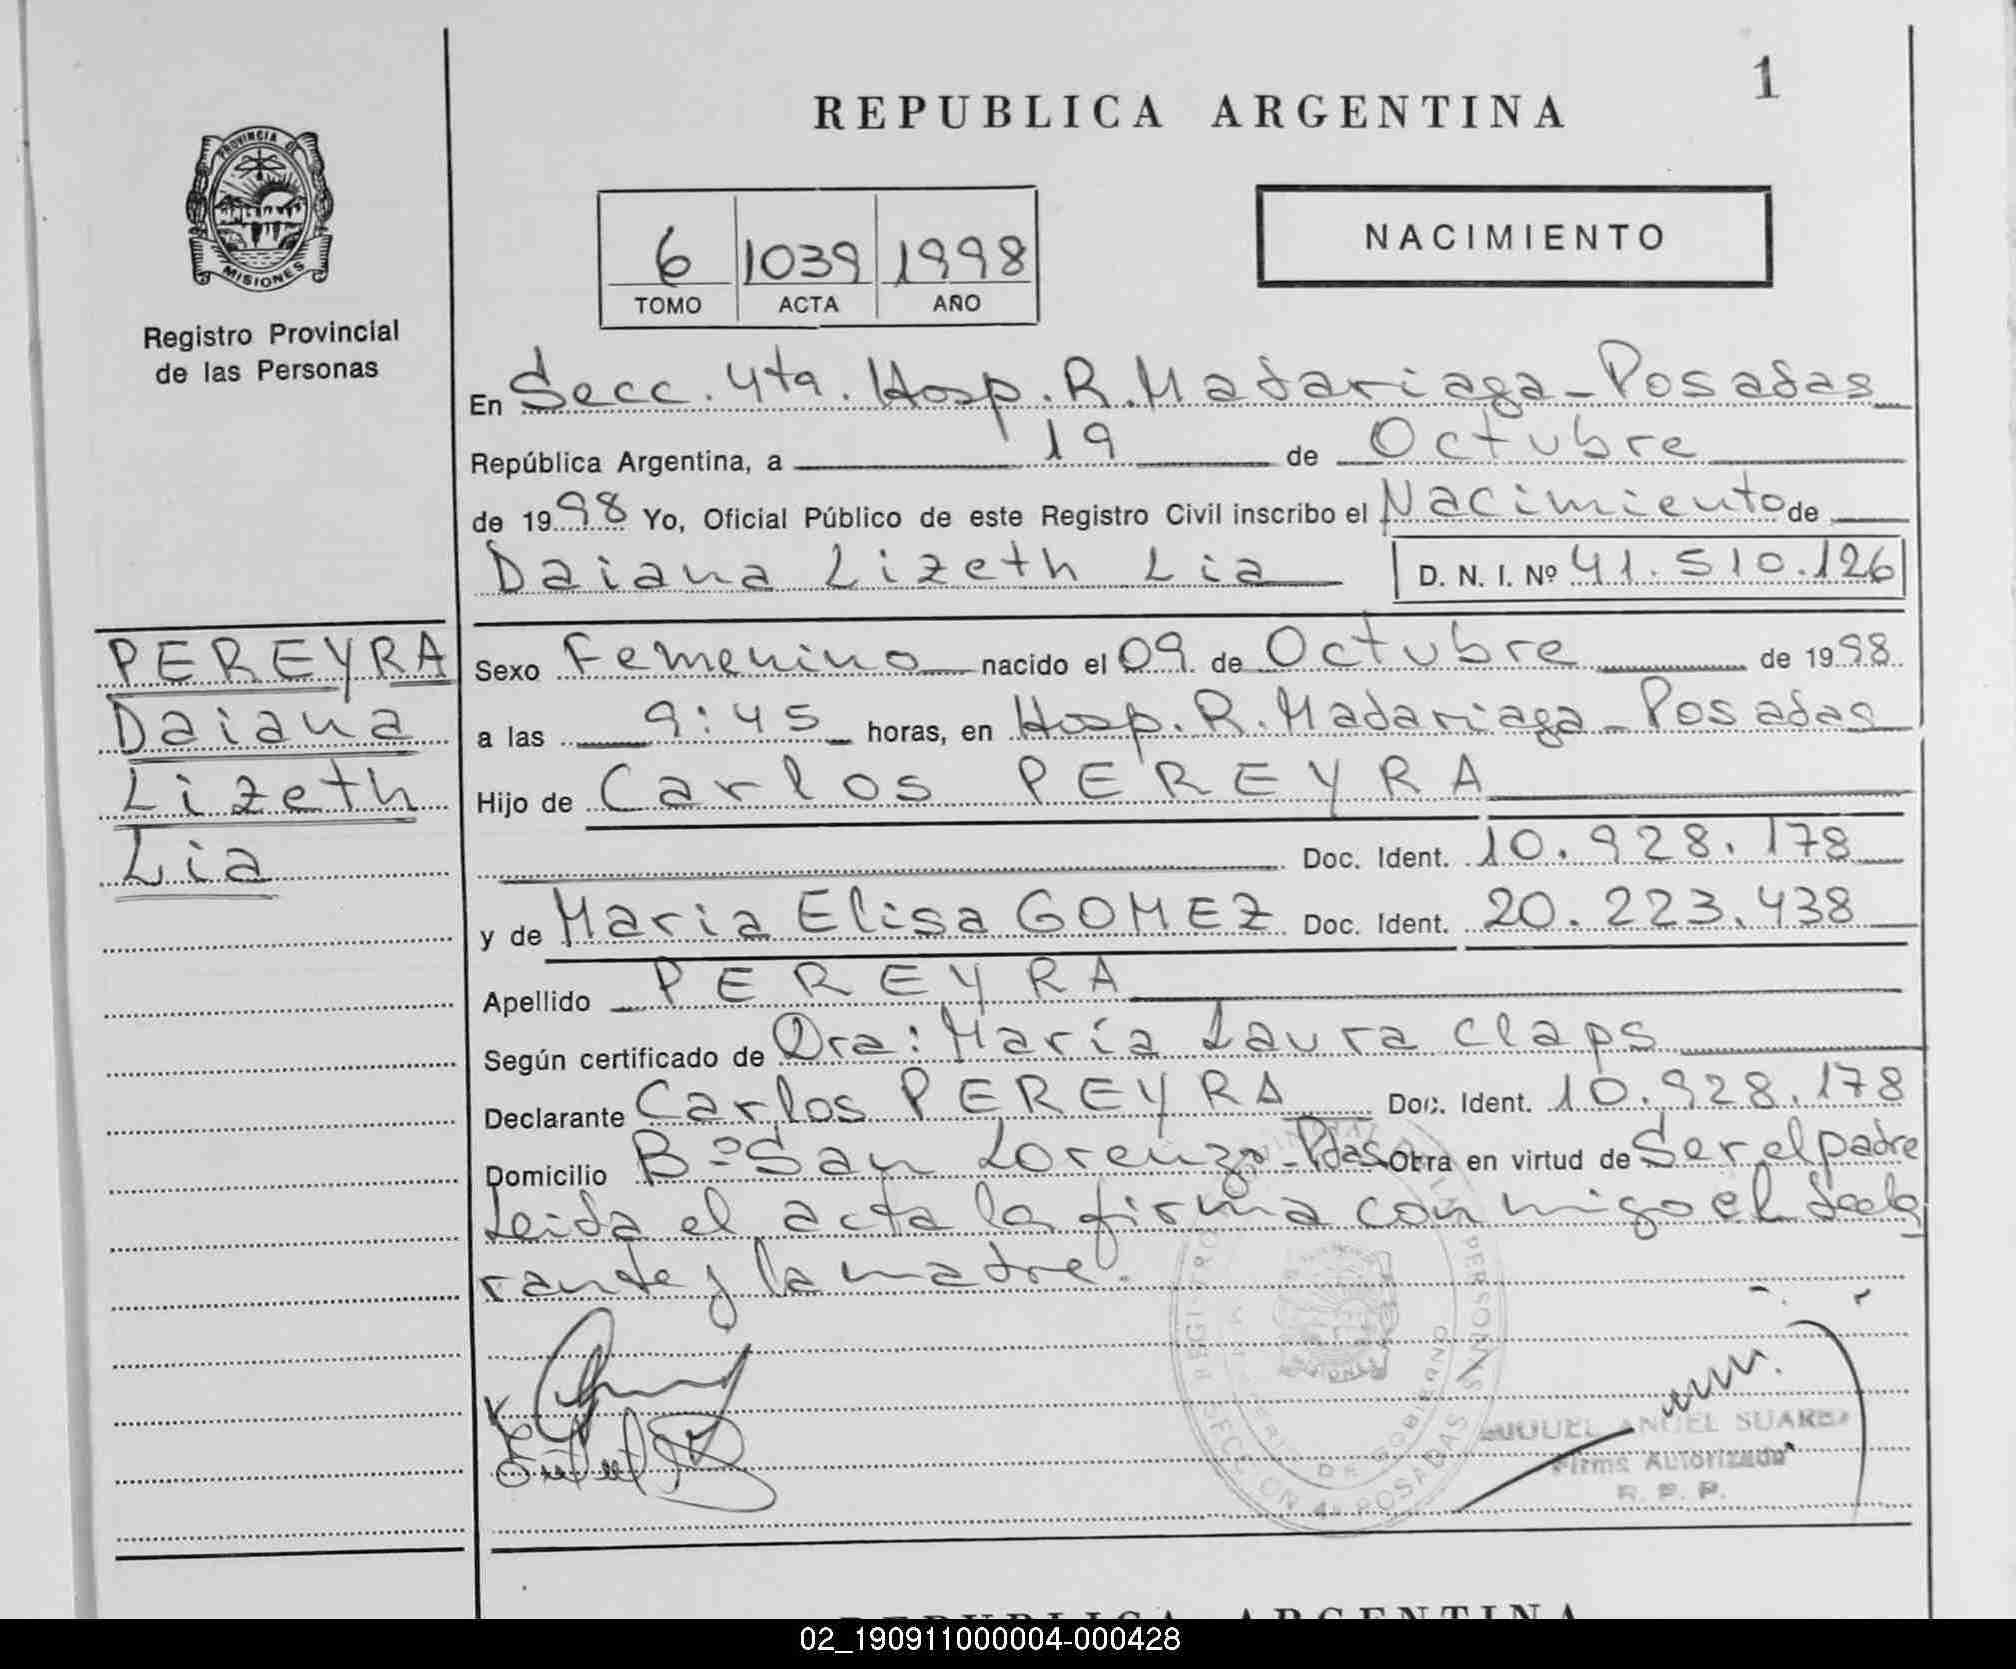 REPUBLICA ARGENTINA
1
PROVINCIA DE
MISIONES
Registro Provincial
de las Personas
6 1039 1998
TOMO ACTA AÑO
NACIMIENTO
En Secc. 4ta. Hosp. R. Madariaga - Posadas
República Argentina, a 19 de Octubre
de 1998 Yo, Oficial Público de este Registro Civil inscribo el Nacimiento de
Daiana Lizeth Lia D. N. I. Nº 41.510.126
PEREYRA
Daiana
Lizeth
Lia
Sexo Femenino nacido el 09 de Octubre de 1998
a las 9:45 horas, en Hosp. R. Madariaga - Posadas
Hijo de Carlos PEREYRA
Doc. Ident. 10.928.178
y de Maria Elisa GOMEZ Doc. Ident. 20.223.438
Apellido PEREYRA
Según certificado de Dra: María Laura Claps
Declarante Carlos PEREYRA Doc. Ident. 10.928.178
Domicilio Bº San Lorenzo - Pdas Obra en virtud de Ser el padre
Leida el acta la firma con migo el decla
rante y la madre.
MIGUEL ANGEL SUAREZ
Firma Autorizada
R. P. P.
REGISTRO PROVINCIAL DE LAS PERSONAS
SECCION 4a POSADAS
DE GOBIERNO
REPUBLICA ARGENTINA
02_190911000004-000428